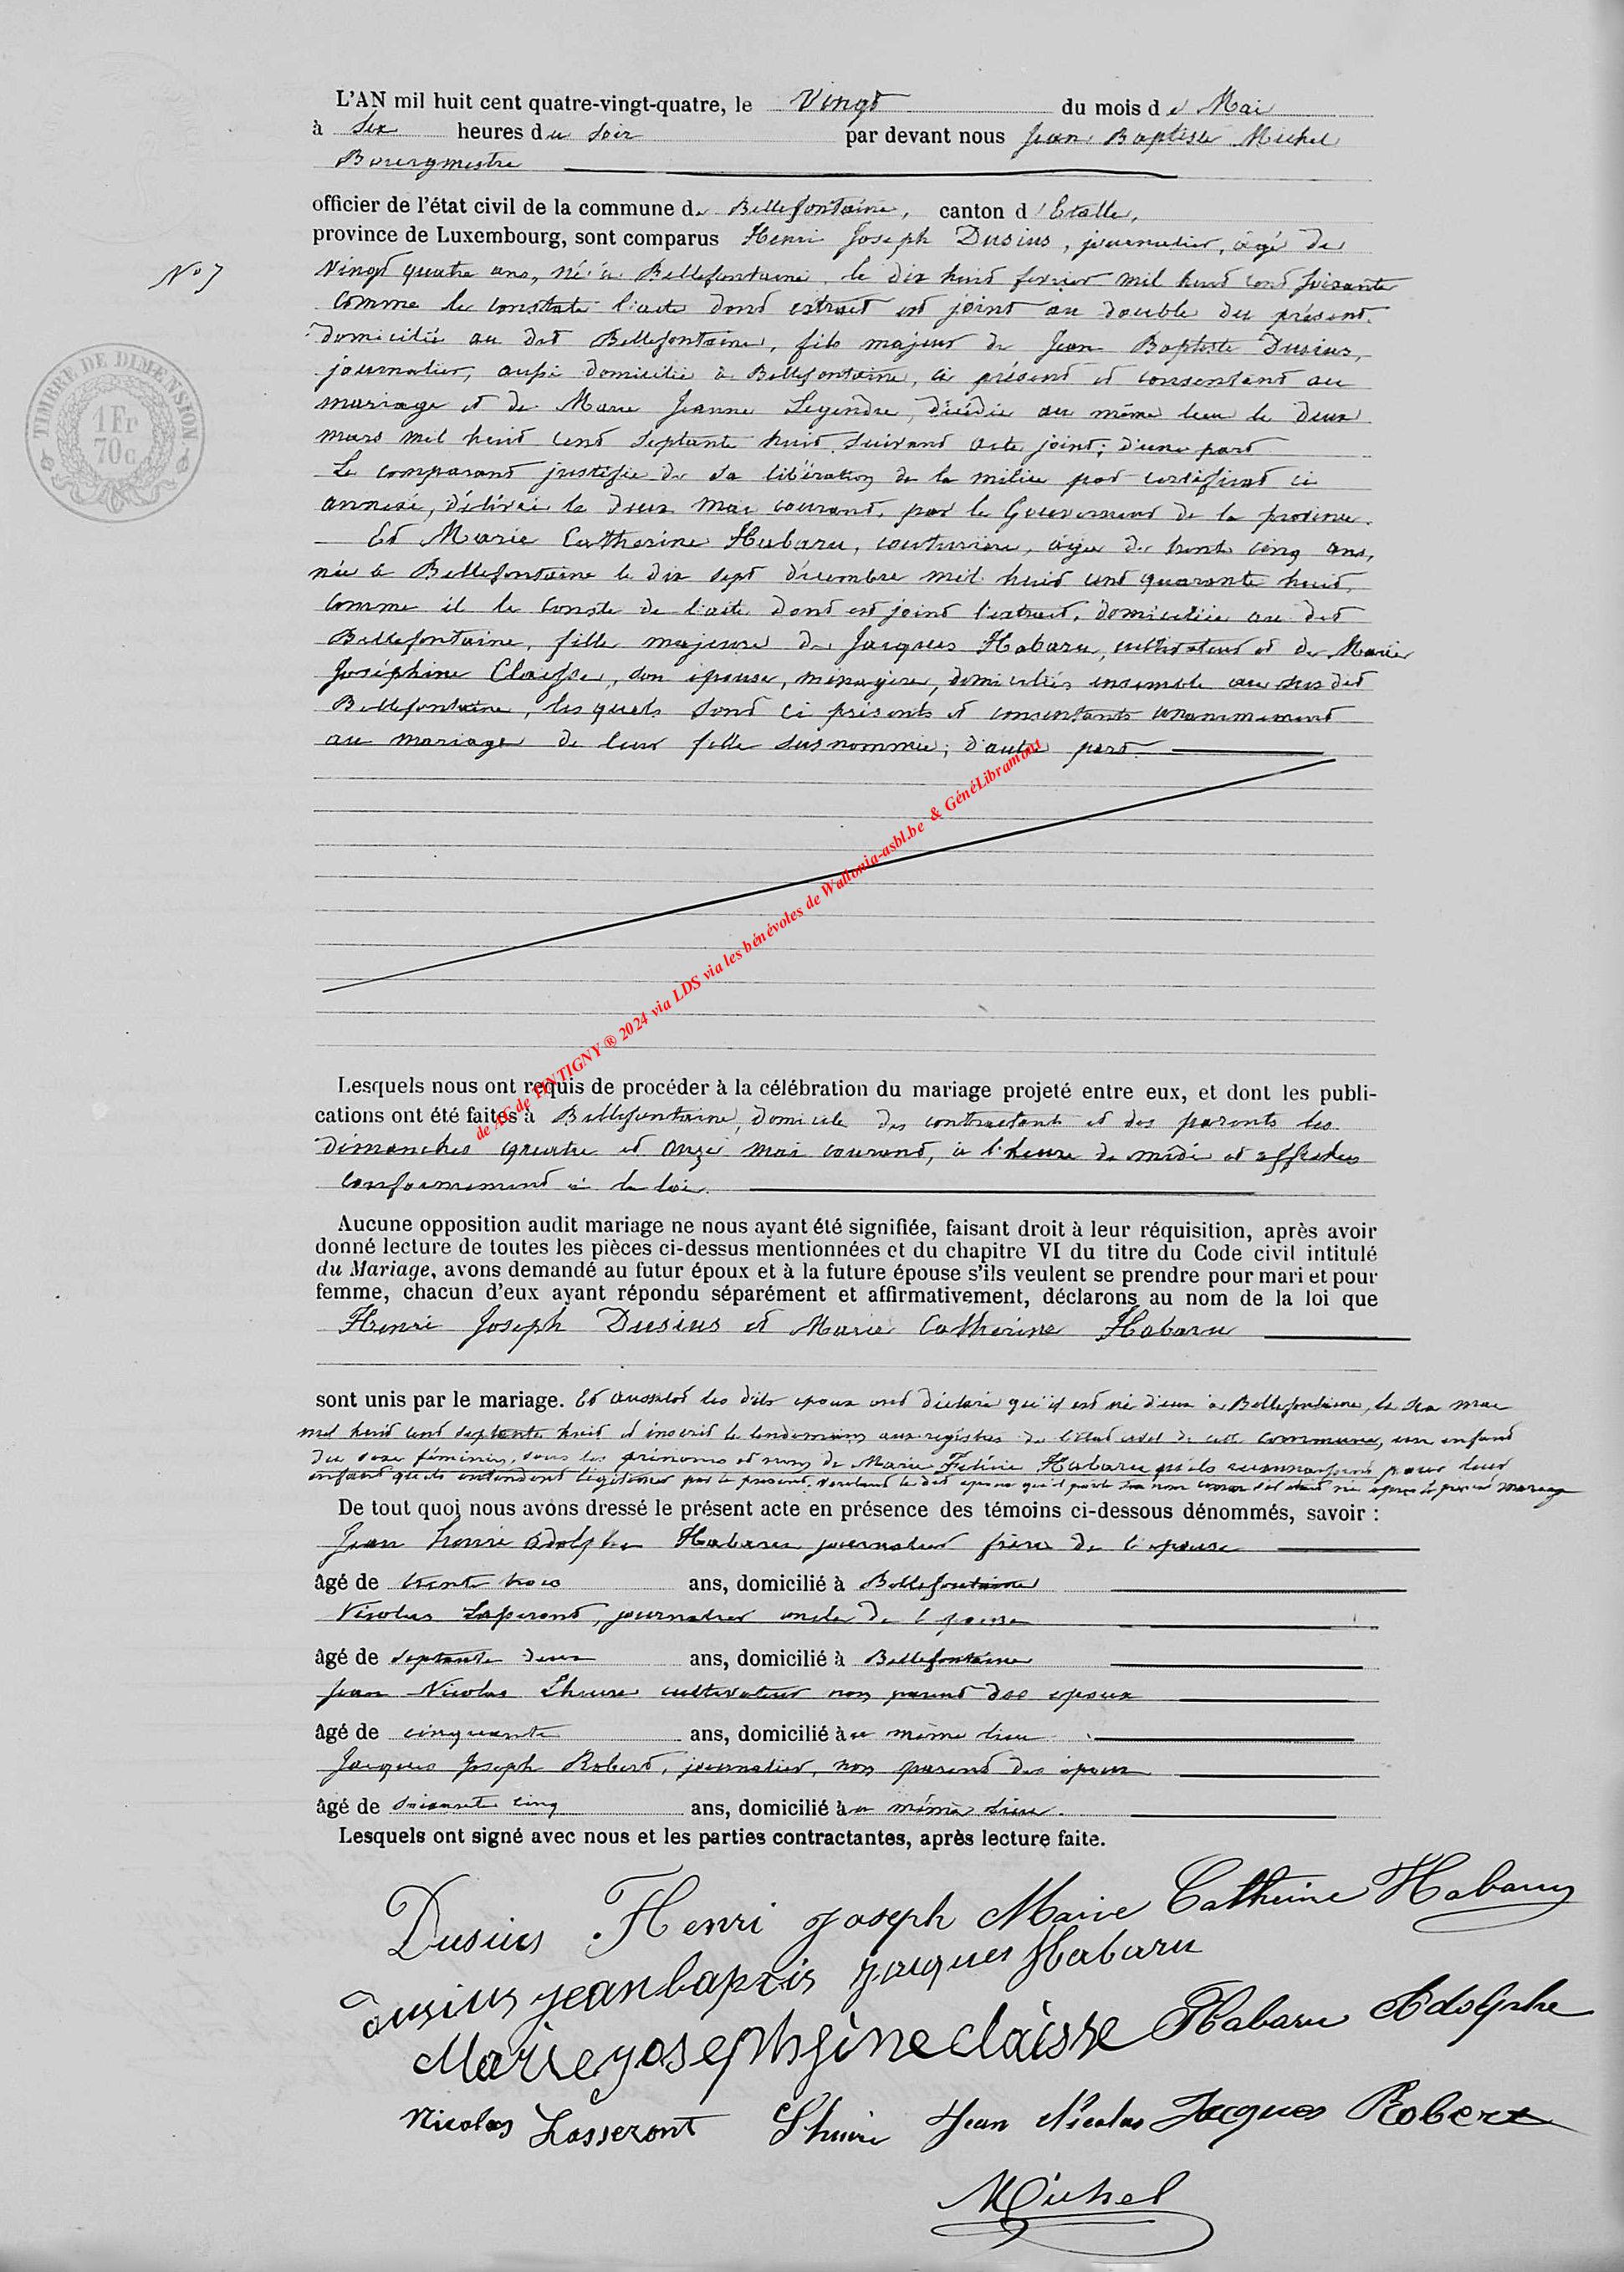 L'AN mil huit cent quatre-vingt-quatre, le Vingt du mois de Mai
à six heures du soir par devant nous Jean Baptiste Michel
Bourgmestre
officier de l'état civil de la commune de Bellefontaine, canton d'Etalle,
province de Luxembourg, sont comparus Henri Joseph Dusius, journalier, âgé de
N° 7
vingt quatre ans, né à Bellefontaine, le dix huit fevrier mil huit cent soixante
comme le constate l'acte dont extrait est joint au double du présent.
domicilié au dit Bellefontaine, fils majeur de Jean Baptiste Dusius,
journalier, aussi domicilié à Bellefontaine, ci présent et consentant au
mariage et de Marie Jeanne Legendre, décédée au même lieu le deux
mars mil huit cent septante huit suivant acte joint; d'une part
Le comparant justifie de sa libération de la milice par certificat ci
annexé, délivré le deux mai courant, par le Gouverneur de la province.
Et Marie Catherine Habaru, couturière, âgée de trente cinq ans,
née à Bellefontaine le dix sept décembre mil huit cent quarante huit,
comme il le conste de l'acte dont est joint l'extrait, domiciliée au dit
Bellefontaine, fille majeure de Jacques Habaru, cultivateur et de Marie
Joséphine Claisse, son épouse, ménagère, domiciliés ensemble au sus dit
Bellefontaine, lesquels sont ci présents et consentants unanimement
au mariage de leur fille sus nommée; d'autre part.
de AC de TINTIGNY ® 2024 via LDS via les bénévoles de Wallonia-asbl.be & GénéLibramont
Lesquels nous ont requis de procéder à la célébration du mariage projeté entre eux, et dont les publi-
cations ont été faites à Bellefontaine, domicile des contractants et des parents les
dimanches quatre et onze mai courant, à l'heure de midi et affichées
conformément à la loi.
Aucune opposition audit mariage ne nous ayant été signifiée, faisant droit à leur réquisition, après avoir
donné lecture de toutes les pièces ci-dessus mentionnées et du chapitre VI du titre du Code civil intitulé
du Mariage, avons demandé au futur époux et à la future épouse s'ils veulent se prendre pour mari et pour
femme, chacun d'eux ayant répondu séparément et affirmativement, déclarons au nom de la loi que
Henri Joseph Dusius et Marie Catherine Habaru
sont unis par le mariage. Et aussitot les dits epoux ont déclaré qu'il est né d'eux à Bellefontaine, le six mai
mil huit cent septante huit et inscrit le lendemain aux registres de l'état civil de cette commune, un enfant
du sexe féminin, sous les prénoms et nom de Marie Felicie Habaru qu'ils reconnaissent pour leur
enfant qu'ils entendent légitimer par le présent, voulant le dit epoux qu'il porte son nom comme s'il était né après le présent mariage
De tout quoi nous avons dressé le présent acte en présence des témoins ci-dessous dénommés, savoir :
Jean henri Adolphe Habaru journalier frère de l'épouse
âgé de trente trois ans, domicilié à Bellefontaine
Nicolas Lasseront, journalier oncle de l'epouse
âgé de septante deux ans, domicilié à Bellefontaine
Jean Nicolas Lhuire cultivateur non parent des epoux
âgé de cinquante ans, domicilié au même lieu
Jacques Joseph Robert, journalier, non parent des époux
âgé de soixante cinq ans, domicilié au même lieu.
Lesquels ont signé avec nous et les parties contractantes, après lecture faite.
Dusius Henri Joseph Marie Catherine Habaru
Dusius jean baptis jacques Habaru
Marie josephine claisse Habaru Adolphe
Nicolas Lasseront Lhuire Jean Nicolas Jacques Robert
Michel
TIMBRE DE DIMENSION
1 Fr
70 c